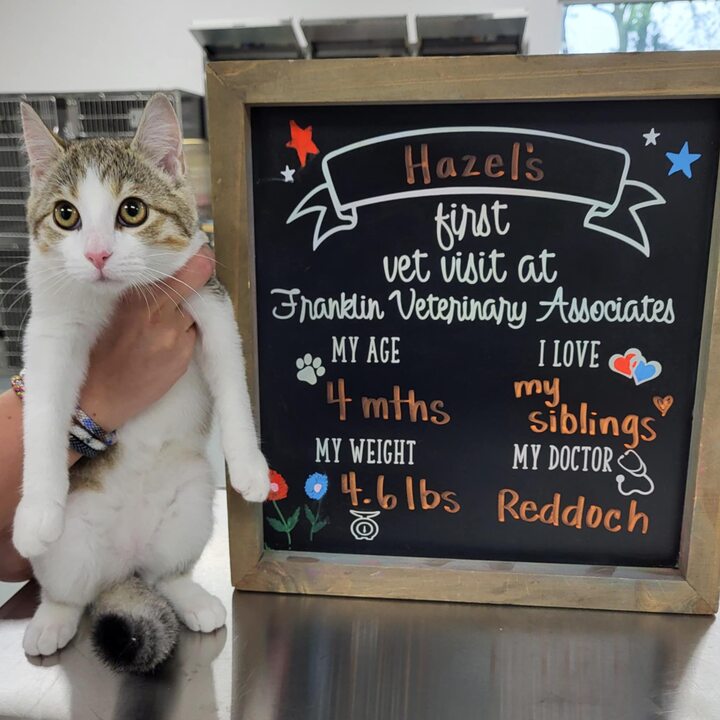 Hazel's
first
vet visit at
Franklin Veterinary Associates
MY AGE
4 mths
MY WEIGHT
4.6 lbs
I LOVE
my
siblings
MY DOCTOR
Reddoch